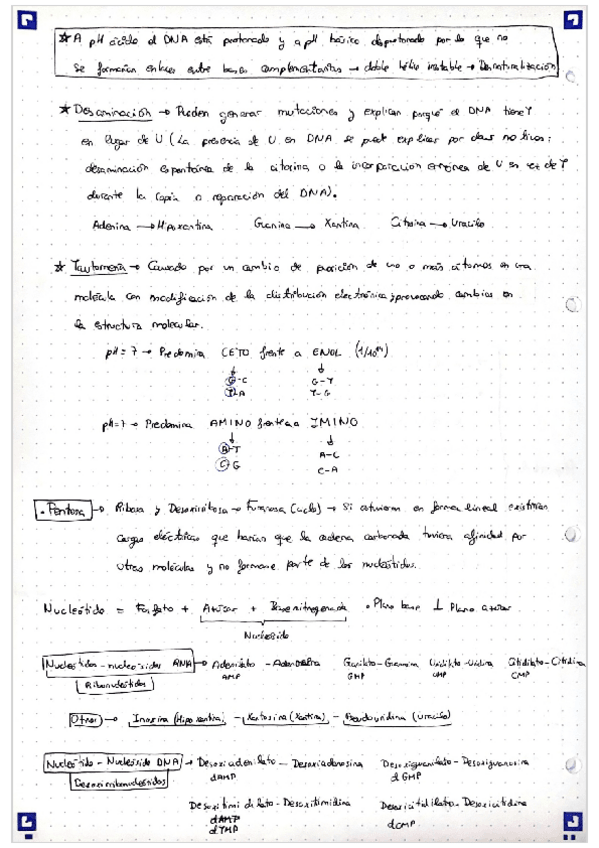 ☆ A pH ácido el DNA está protonado y a pH básico desprotonado por lo que no
se formarían enlaces entre bases complementarias → doble hélice instable → Desnaturalización
★ Desaminación → Pueden generar mutaciones y explican porqué el DNA tiene T
en lugar de U (La presencia de U en DNA se puede explicar por dos motivos:
desaminación espontánea de la citosina o la incorporación errónea de U en vez de T
durante la copia o reparación del DNA).
Adenina → Hipoxantina Guanina → Xantina Citosina → Uracilo
☆ Tautomería → Causado por un cambio de posición de uno o más átomos en una
molécula con modificación de la distribución electrónica, provocando cambios en
la estructura molecular.
pH = 7 → Predomina CETO frente a ENOL
G-C G-T
T-A T-G
pH=7 → Predomina AMINO frente a IMINO
A-T A-C
C-G C-A
• Pentosa → Ribosa y Desoxirribosa → Furanosa (ciclo) → Si estuvieran en forma lineal existirían
cargas eléctricas que harían que la cadena carbonada tuviera afinidad por
otras moléculas y no formase parte de los nucleótidos.
Nucleótido = Fosfato + Azúcar + Base nitrogenada • Plano base ⊥ Plano azúcar
Nucleósido
Nucleótidos-nucleósidos RNA → Adenilato - Adenosina Guanilato - Guanosina Uridilato - Uridina Citidilato - Citidina
Ribonucleótidos AMP GMP UMP CMP
Otros → Inosina (Hipoxantina) - Xantosina (Xantina) - Pseudouridina (Uracilo)
Nucleótido - Nucleósido DNA → Desoxiadenilato - Desoxiadenosina Desoxiguanilato - Desoxiguanosina
Desoxirribonucleótidos dAMP dGMP
Desoxitimidilato - Desoxitimidina Desoxicitidilato - Desoxicitidina
dAMP dCMP
dTMP